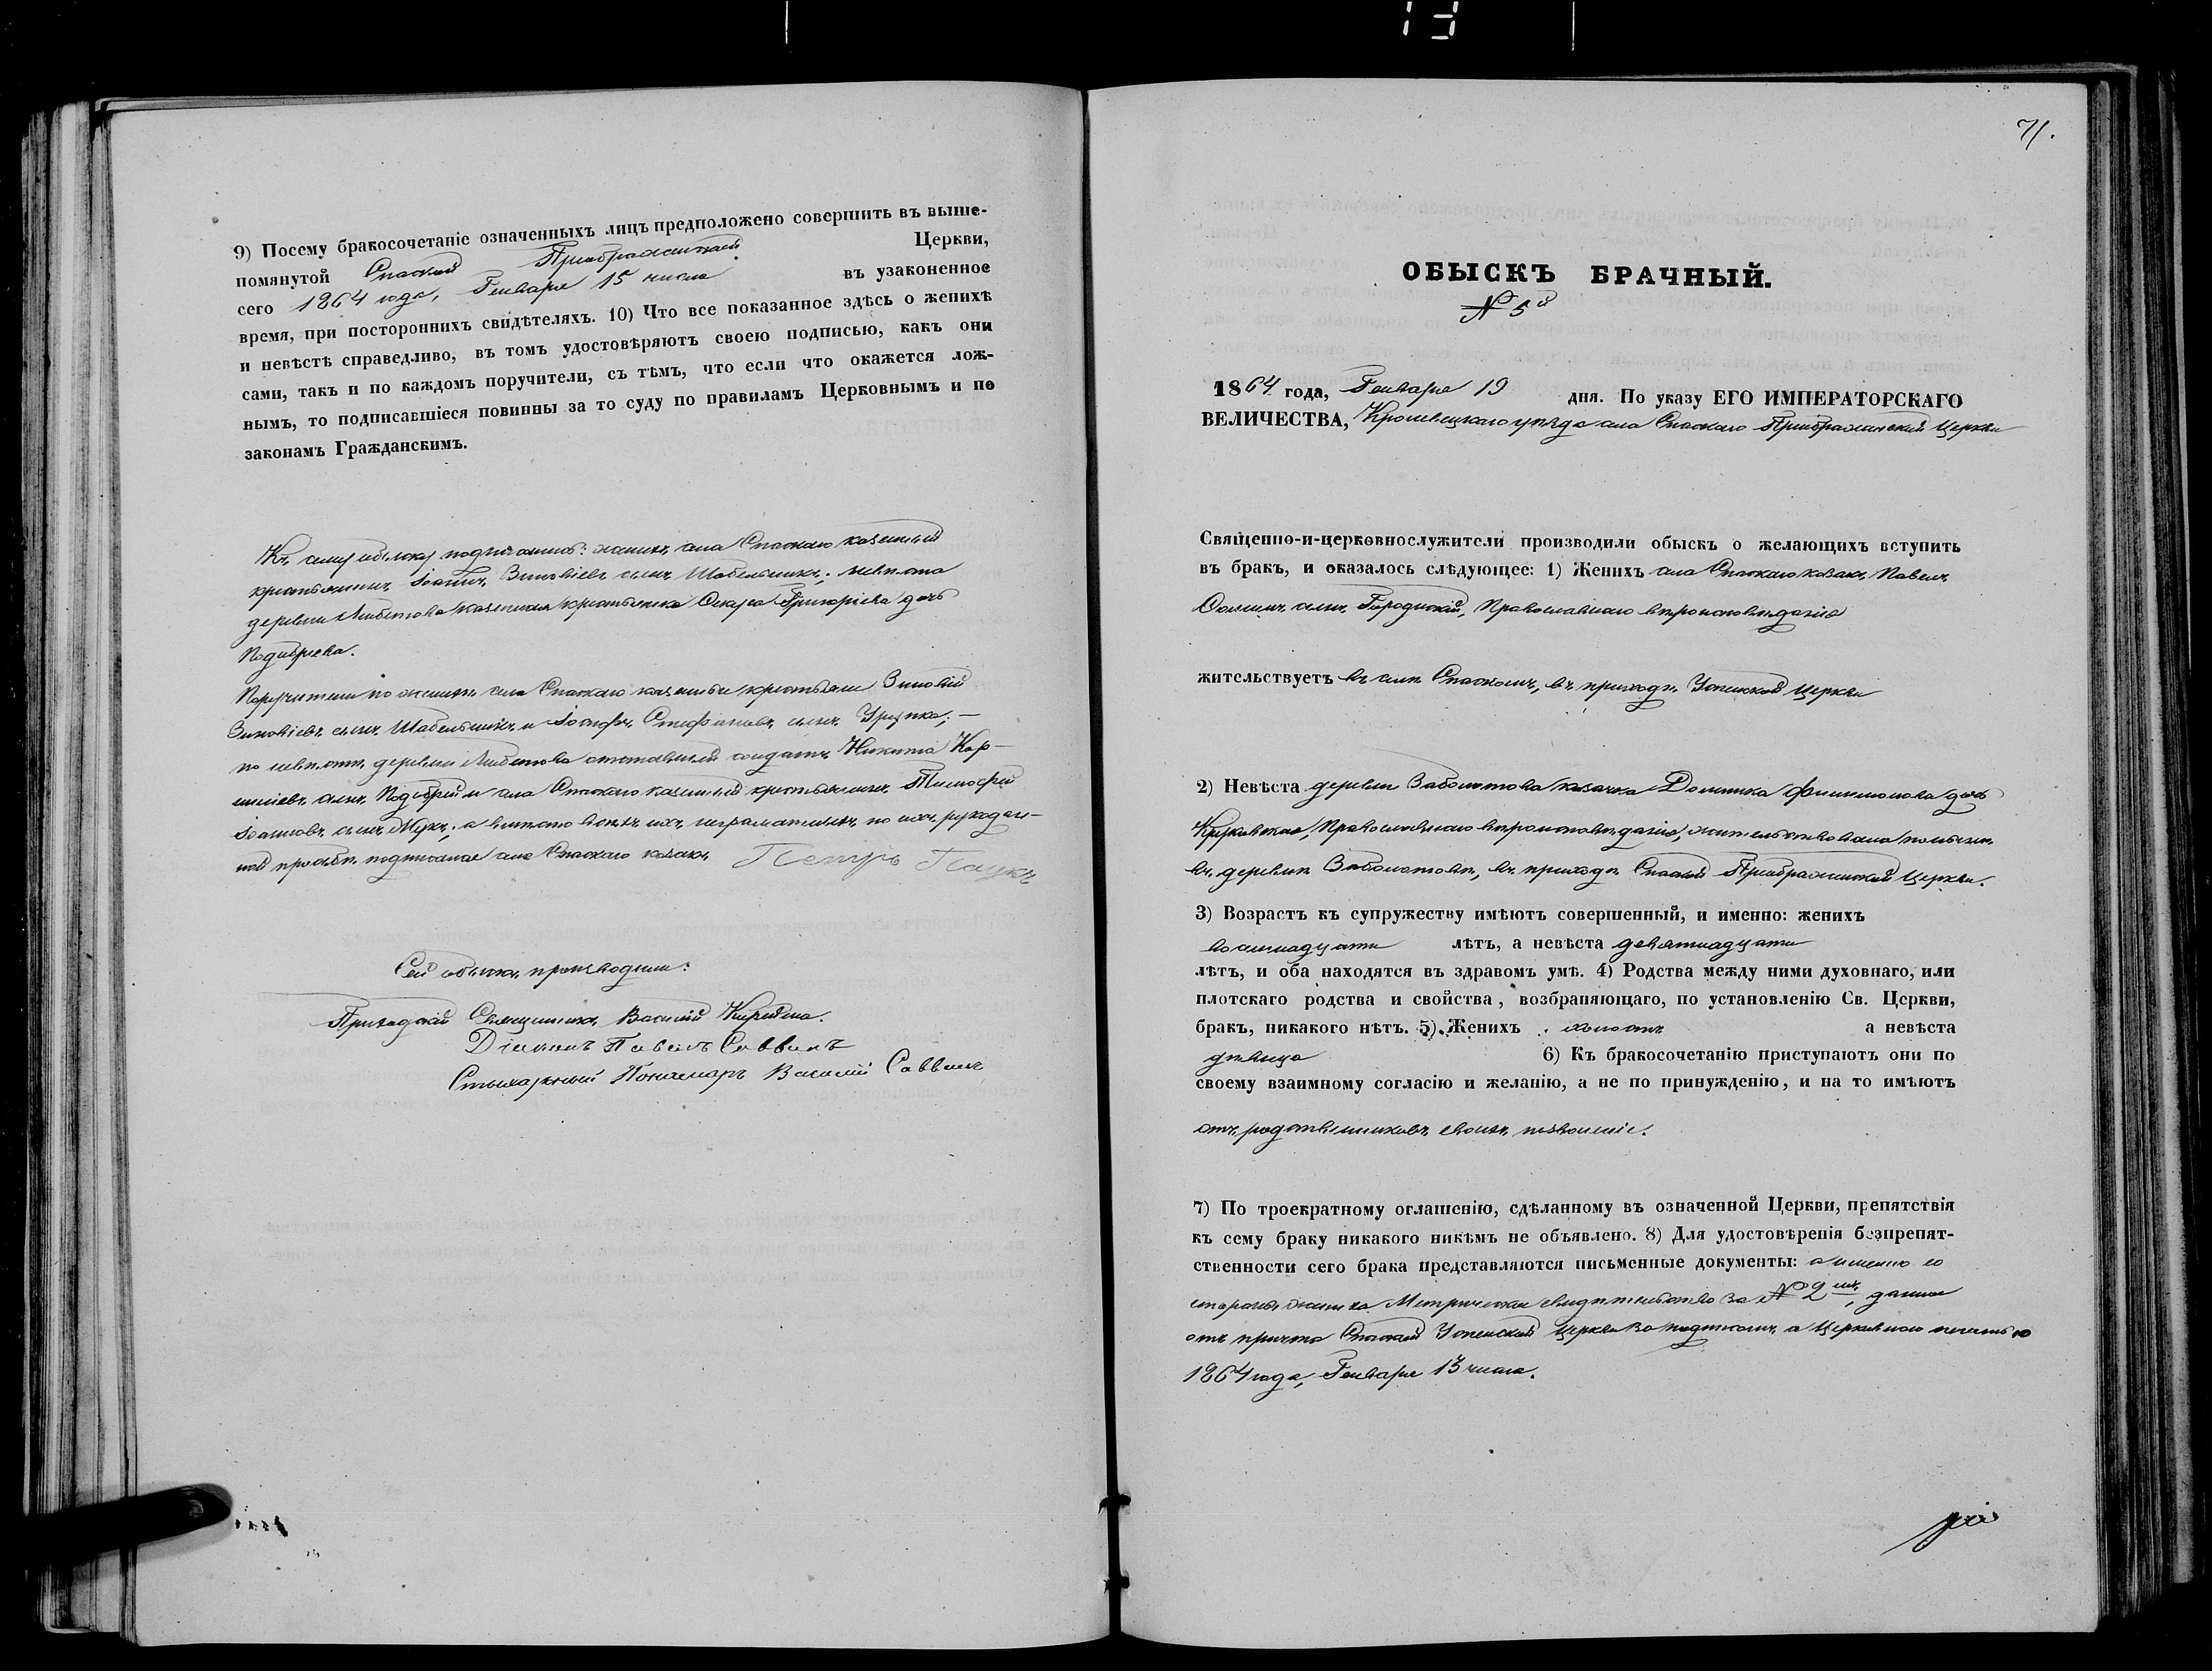 9) Посему бракосочетаніе означенныхъ лицъ предположено совершить въ выше-
помянутой Спаской Преображенской Церкви,
сего 1864 года, Генваря 15 числа въ узаконенное
время, при постороннихъ свидѣтеляхъ. 10) Что все показанное здѣсь о женихѣ
и невѣстѣ справедливо, въ томъ удостовѣряютъ своею подписью, какъ они
сами, такъ и по каждомъ поручители, съ тѣмъ, что если что окажется лож-
нымъ, то подписавшіеся повинны за то суду по правиламъ Церковнымъ и по
законамъ Гражданскимъ.
Къ сему обыску подписались: женихъ села Спаскаго казенный
крестьянинъ Іоаннъ Зиновіевъ сынъ Шабельникъ; невѣста
деревни Любитова казенная крестьянка Григоріева дочь
Поручители по женихѣ села Спаскаго казенные крестьяне Зиновій
Зиновіевъ сынъ Шабельникъ и Іосифъ Стефановъ сынъ
по невѣстѣ деревни Любитова отставный солдатъ Никита Кор-
ниліевъ сынъ и села Спаскаго казенный крестьянинъ Тимофей
Іоанновъ сынъ Жукъ; а вместо всехъ ихъ неграматныхъ по ихъ рукодан-
ной прозьбѣ подписался села Спаскаго козакъ Петръ Паукъ
Сей обыскъ производили:
Приходскій Священникъ Василій
Діаконъ Павелъ Саввинъ
Стихарный Пономарь Василій Саввинъ
71.
ОБЫСКЪ БРАЧНЫЙ.
№ 5й
1864 года, Генваря 19 дня. По указу ЕГО ИМПЕРАТОРСКАГО
ВЕЛИЧЕСТВА, Кролевецкаго уѣзда села Спаскаго Преображенской Церкви
Священно-и-церковнослужители производили обыскъ о желающихъ вступить
въ бракъ, и оказалось слѣдующее: 1) Женихъ села Спаскаго козакъ Павелъ
сынъ Городискій, Православнаго вѣроисповѣданія
жительствуетъ въ селѣ Спаскомъ, въ приходѣ Успенской Церкви
2) Невѣста деревни Заболотова козачка Домника Филимонова дочь
Православнаго вѣроисповѣданія, жительствовала
въ деревнѣ Заболотовѣ, въ приходѣ Спаской Преображенской Церкви.
3) Возрастъ къ супружеству имѣютъ совершенный, и именно: женихъ
восемнадцати лѣтъ, а невѣста девятнадцати
лѣтъ, и оба находятся въ здравомъ умѣ. 4) Родства между ними духовнаго, или
плотскаго родства и свойства, возбраняющаго, по установленію Св. Церкви,
бракъ, никакого нѣтъ. 5) Женихъ холостъ а невѣста
дѣвица 6) Къ бракосочетанію приступаютъ они по
своему взаимному согласію и желанію, а не по принужденію, и на то имѣютъ
отъ родственниковъ своихъ позволеніе.
7) По троекратному оглашенію, сдѣланному въ означенной Церкви, препятствія
къ сему браку никакого никѣмъ не объявлено. 8) Для удостовѣренія безпрепят-
ственности сего брака представляются письменные документы: а именно со
стороны жениха Метрическое свидѣтельство за № 2мъ, данное
отъ причта Спаской Успенской Церкви за подписомъ и Церковною печатью
1864 года, Генваря 13 числа.